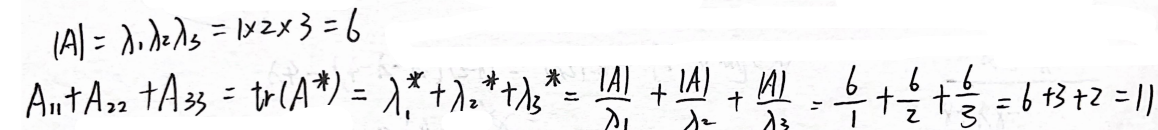 |A| = λ₁λ₂λ₃ = 1×2×3 = 6
A₁₁+A₂₂+A₃₃ = tr(A*) = λ₁*+λ₂*+λ₃* = |A|/λ₁ + |A|/λ₂ + |A|/λ₃ = 6/1 + 6/2 + 6/3 = 6+3+2 = 11